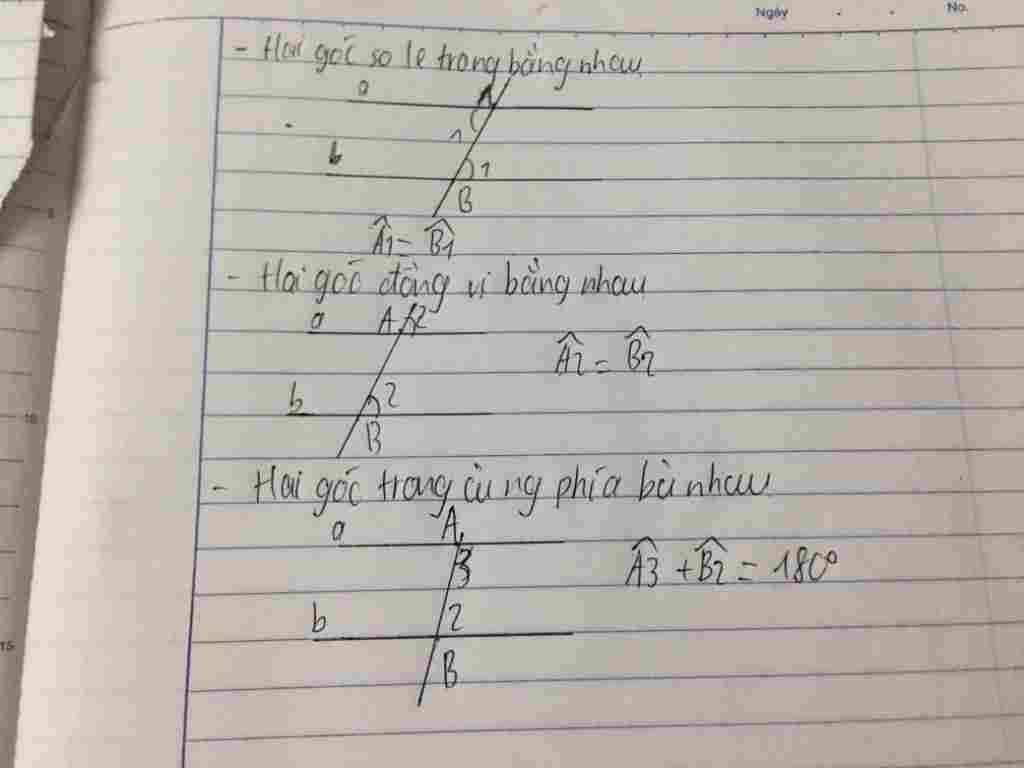 Ngày . . No.
- Hai góc so le trong bằng nhau
a A
1
b 1
B
Â1 = B̂1
- Hai góc đồng vị bằng nhau
a A 2
Â2 = B̂2
b 2
B
- Hai góc trong cùng phía bù nhau
a A
3
Â3 + B̂2 = 180°
b 2
B
10
15